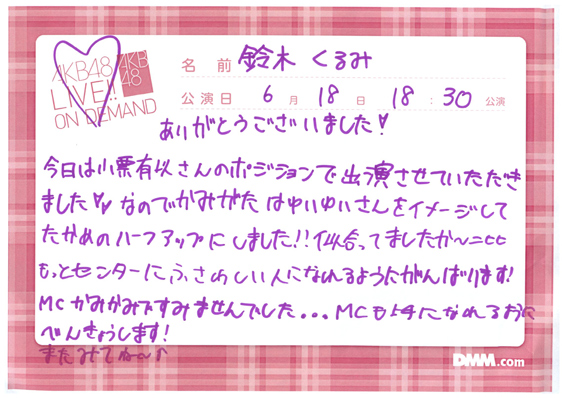 AKB48
LIVE!!
ON DEMAND
AKB
48
名前 鈴木くるみ
公演日 6月18日 18:30公演
ありがとうございました!
今日は小栗有以さんのポジションで出演させていただき
ました なのでかみがたはゆいゆいさんをイメージして
たかめのハーフアップにしました!!似合ってましたか〜
もっとセンターにふさわしい人になれるようにがんばります!
MCかみかみですみませんでした...MCも上手になれるように
べんきょうします!
またみてね〜♪
DMM.com